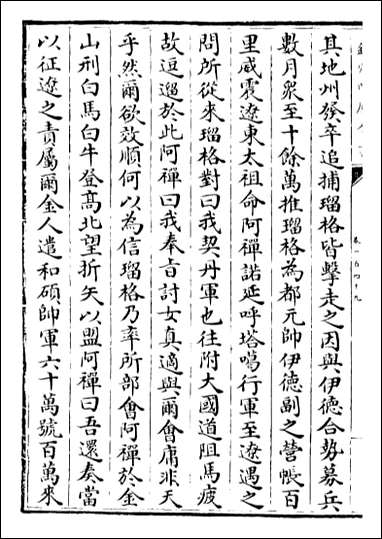 其地州發卒追捕瑠格皆擊走之因與伊德合勢募兵
數月衆至十餘萬推瑠格為都元帥伊德副之營帳百
里威震遼東太祖命阿禪諾延呼塔噶行軍至遼遇之
問所從來瑠格對曰我契丹軍也往附大國道阻馬疲
故逗遛於此阿禪曰我奉㫖討女真適與爾會庸非天
乎然爾欲效順何以為信瑠格乃率所部會阿禪於金
山刑白馬白牛登高北望折矢以盟阿禪曰吾還奏當
以征遼之責屬爾金人遣和碩帥軍六十萬號百萬來
卷一百四十九